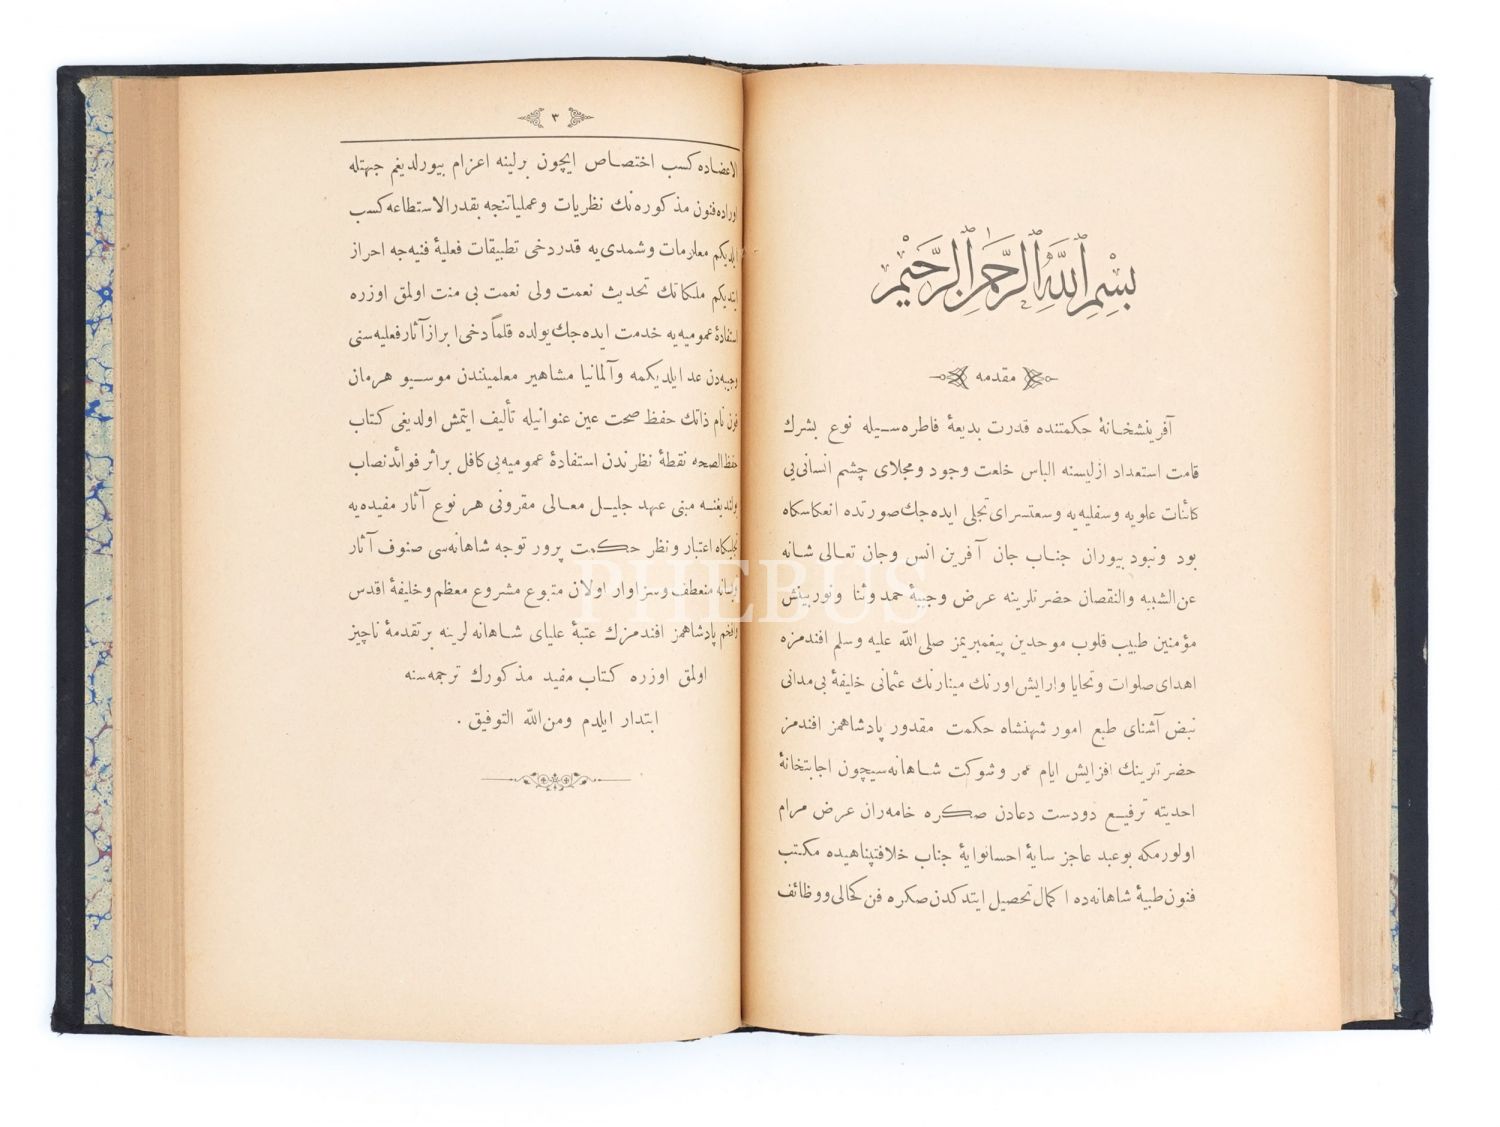 بسم الله الرحمن الرحيم
مقدمه
آفرينشخانهٔ حكمتنده قدرت بديعهٔ فاطره‌سيله نوع بشرك
قامت استعداد ازليسنه الباس خلعت وجود ومجلاى چشم انسانى‌يى
كائنات علويه وسفليه‌يه وسعتسراى تجلى ايده‌جك صورتده انعكاسكاه
بود ونبود بيوران جناب جان آفرين انس وجان تعالى شانه
عن الشبيه والنقصان حضرتلرينه عرض وجيبهٔ حمد وثنا ونوربينش
مؤمنين طبيب قلوب موحدين پيغمبريمز صلى الله عليه وسلم افندمزه
اهداى صلوات وتحايا وارايش اورنك مينارنك عثمانى خليفهٔ بى‌مدانى
نبض آشناى طبع امور شهنشاه حكمت مقدور پادشاهمز افندمز
حضرتلرينك افزايش ايام عمر وشوكت شاهانه‌سيچون اجابتخانهٔ
احديته ترفيع دودست دعادن صكره خامه‌ران عرض مرام
اولورمكه بوعبد عاجز سايهٔ احسانوايهٔ جناب خلافتپناهيده مكتب
فنون طبيهٔ شاهانه‌ده اكمال تحصيل ايتدكدن صكره فن كحالى ووظائف
٣
الاعضاده كسب اختصاص ايچون برلينه اعزام بيورلديغم جهتله
اوراده فنون مذكوره‌نك نظريات وعملياتنجه بقدر الاستطاعه كسب
ايلديكم معلومات وشمدى‌يه قدر دخى تطبيقات فعليهٔ فنيه‌جه احراز
ايتديكم ملكاتك تحديث نعمت ولى نعمت بى منت اولمق اوزره
استفادهٔ عموميه‌يه خدمت ايده‌جك يولده قلماً دخى ابراز آثار فعليه‌سنى
وجيبه‌دن عد ايلديكمه وآلمانيا مشاهير معلميندن موسيو هرمان
قون نام ذاتك حفظ صحت عين عنوانيله تأليف ايتمش اولديغى كتاب
حفظ الصحه نقطهٔ نظرندن استفادهٔ عموميه‌يى كافل براثر فوائدنصاب
بولنديغنه مبنى عهد جليل معالى مقرونى هر نوع آثار مفيده‌يه
تجليكاه اعتبار ونظر حكمت پرور توجه شاهانه‌سى صنوف آثار
منعطف وسزاوار اولان متبوع مشروع معظم وخليفهٔ اقدس
وافخم پادشاهمز افندمزك عتبهٔ علياى شاهانه‌لرينه برتقدمهٔ ناچيز
اولمق اوزره كتاب مفيد مذكورك ترجمه‌سنه
ابتدار ايلدم ومن الله التوفيق .
PHEBUS